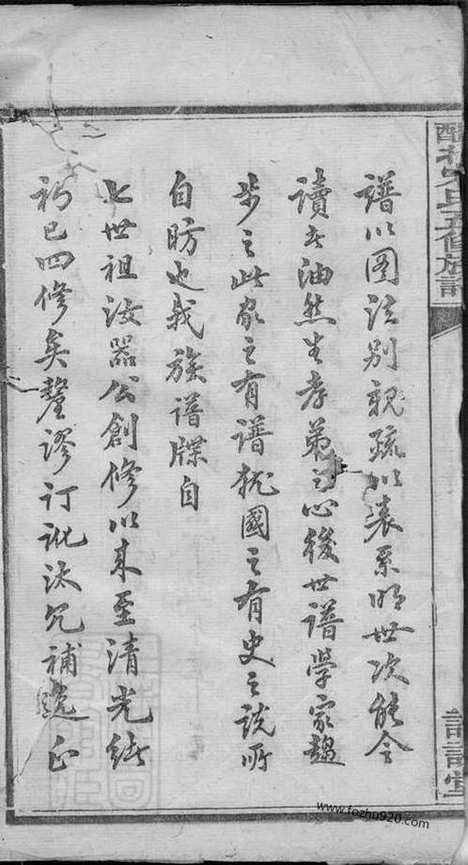 譜以圖法別親疏以表系明世次能令
讀者油然生孝弟之心後世譜學家趨
步之此家之有譜抗國之有史之說所
自昉也我族譜牒自
七世祖汝器公創修以來至清光緒
初已四修矣釐謬訂訛汰冗補闕正
氏五修族譜
www.fozhu920.com